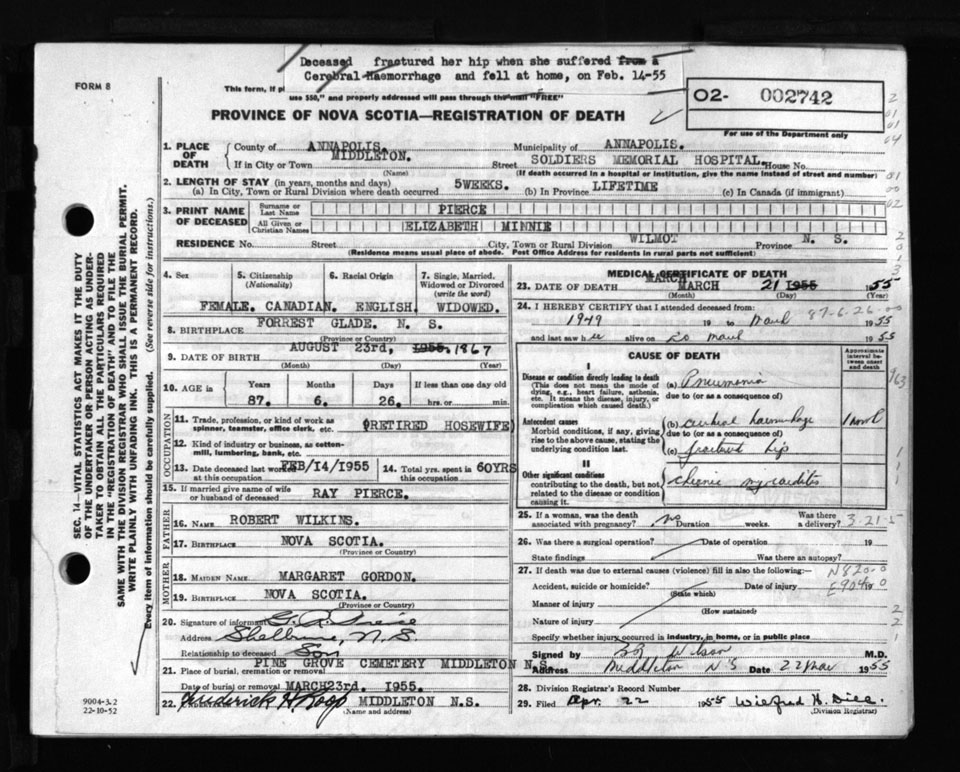 Deceased fractured her hip when she suffered from a
Cerebral Haemorrhage and fell at home, on Feb. 14-55
FORM 8
This form, if pl
use $50," and properly addressed will pass through the mail "FREE"
O2- 002742
For use of the Department only
PROVINCE OF NOVA SCOTIA—REGISTRATION OF DEATH
1. PLACE OF DEATH
County of ANNAPOLIS. Municipality of ANNAPOLIS.
If in City or Town MIDDLETON. Street SOLDIERS MEMORIAL HOSPITAL. House No.
(Name) (If death occurred in a hospital or institution, give the name instead of street and number)
2. LENGTH OF STAY (in years, months and days)
(a) In City, Town or Rural Division where death occurred 5WEEKS. (b) In Province LIFETIME (c) In Canada (if immigrant)
3. PRINT NAME OF DECEASED
Surname or Last Name PIERCE
All Given or Christian Names ELIZABETH MINNIE
RESIDENCE No. Street City, Town or Rural Division WILMOT Province N. S.
(Residence means usual place of abode. Post Office Address for residents in rural parts not sufficient)
4. Sex 5. Citizenship (Nationality) 6. Racial Origin 7. Single, Married, Widowed or Divorced (write the word)
FEMALE. CANADIAN. ENGLISH. WIDOWED.
8. BIRTHPLACE FORREST GLADE. N. S.
(Province or Country)
9. DATE OF BIRTH AUGUST 23rd, 1955. 1867
(Month) (Day) (Year)
10. AGE in Years Months Days If less than one day old
87. 6. 26. hrs. or min.
OCCUPATION
11. Trade, profession, or kind of work as spinner, teamster, office clerk, etc. (RETIRED HOSEWIFE)
12. Kind of industry or business, as cotton-mill, lumbering, bank, etc.
13. Date deceased last worked at this occupation FEB/14/1955 14. Total yrs. spent in this occupation 60YRS
15. If married give name of wife or husband of deceased RAY PIERCE.
FATHER
16. NAME ROBERT WILKINS.
17. BIRTHPLACE NOVA SCOTIA.
(Province or Country)
MOTHER
18. MAIDEN NAME MARGARET GORDON.
19. BIRTHPLACE NOVA SCOTIA.
(Province or Country)
20. Signature of informant
Address Shelburne, N.S
Relationship to deceased Son
21. Place of burial, cremation or removal PINE GROVE CEMETERY MIDDLETON N.S.
Date of burial or removal MARCH23rd. 1955.
22. MIDDLETON N.S.
(Name and address)
MEDICAL CERTIFICATE OF DEATH
23. DATE OF DEATH MARCH MARCH 21 1955 1955
(Month) (Day) (Year)
24. I HEREBY CERTIFY that I attended deceased from:
87-6-26
1949 19 to 1955
and last saw h alive on 20 1955
CAUSE OF DEATH
Approximate interval between onset and death
I
Disease or condition directly leading to death (This does not mean the mode of dying, e.g., heart failure, asthenia, etc. It means the disease, injury, or complication which caused death.)
(a) Pneumonia
due to (or as a consequence of)
Antecedent causes
Morbid conditions, if any, giving rise to the above cause, stating the underlying condition last.
(b) cerebral haemorrhage
due to (or as a consequence of)
(c) fractured hip
II
Other significant conditions contributing to the death, but not related to the disease or condition causing it.
chronic myocarditis
25. If a woman, was the death associated with pregnancy? no Duration weeks. Was there a delivery? 3-21-5
26. Was there a surgical operation? Date of operation 19
State findings Was there an autopsy?
27. If death was due to external causes (violence) fill in also the following:— N820-0
Accident, suicide or homicide? Date of injury 19
(State which)
Manner of injury
(How sustained)
Nature of injury
Specify whether injury occurred in industry, in home, or in public place
Signed by Wilson M.D.
Address Middleton N S Date 22 Mar 1955
28. Division Registrar's Record Number
29. Filed Apr. 22 1955
(Division Registrar)
SEC. 14—VITAL STATISTICS ACT MAKES IT THE DUTY
OF THE UNDERTAKER OR PERSON ACTING AS UNDER-
TAKER TO OBTAIN ALL THE PARTICULARS REQUIRED
IN THE "REGISTRATION OF DEATH" AND TO FILE THE
SAME WITH THE DIVISION REGISTRAR WHO SHALL ISSUE THE BURIAL PERMIT.
WRITE PLAINLY WITH UNFADING INK. THIS IS A PERMANENT RECORD.
Every item of information should be carefully supplied. (See reverse side for instructions.)
9004-3.2
22-10-52